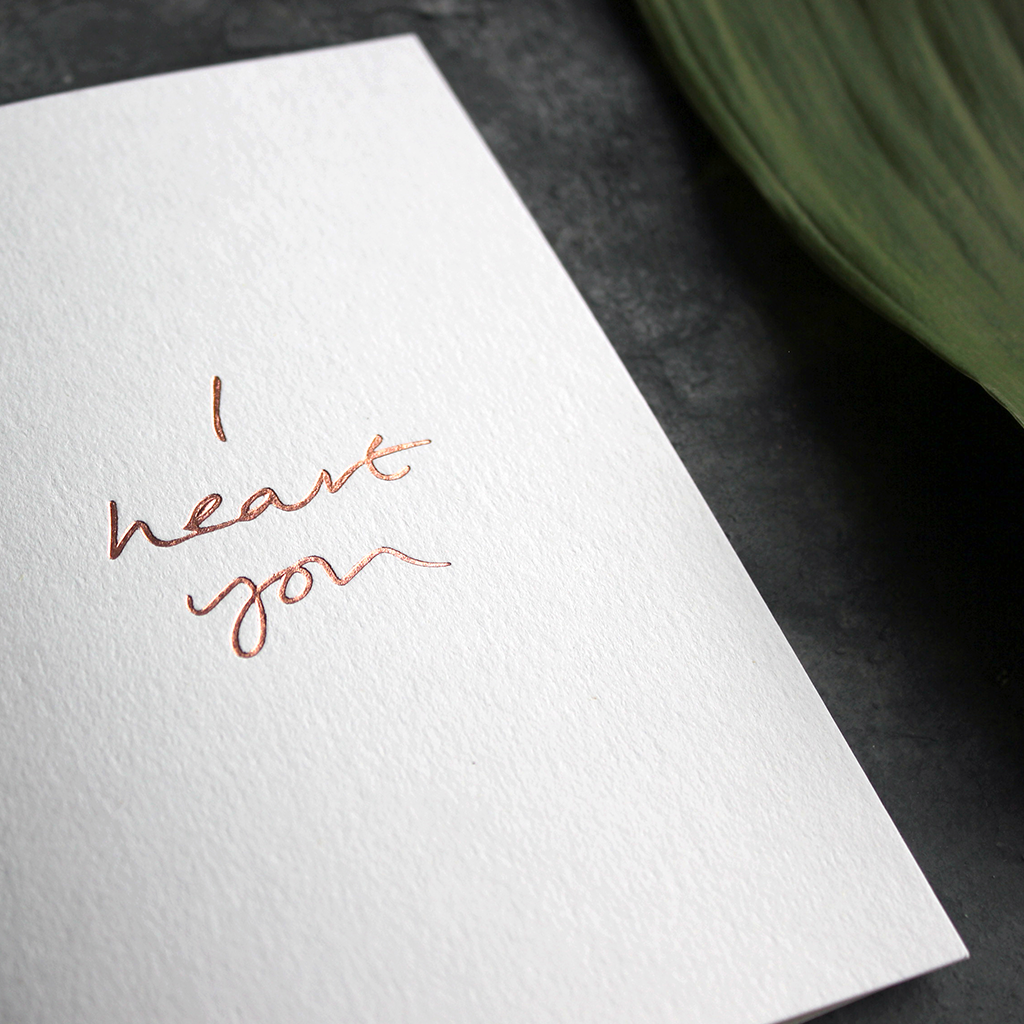 I
heart
you